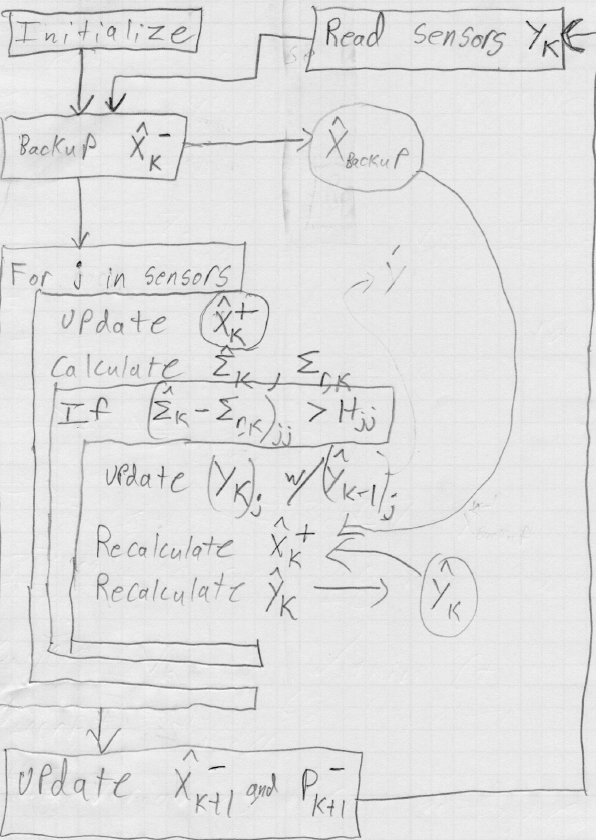 Initialize
Read sensors Y_K
Backup X̂_K^-
X̂_Backup
For j in sensors
Update X̂_K^+
Calculate Σ̂_K, Σ_{r,K}
If (Σ̂_K - Σ_{r,K})_jj > H_jj
Update (Y_K)_j w/(Ŷ_{K-1})_j
Recalculate X̂_K^+
Recalculate Ŷ_K
Ŷ_K
Update X̂_{K+1}^- and P_{K+1}^-